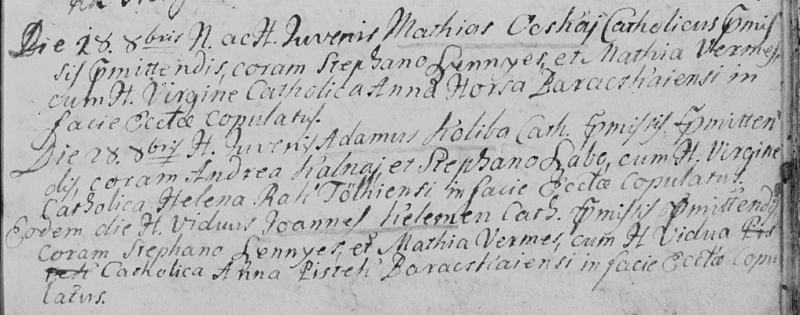 Die 28. 8bris N. ac H. Juvenis Mathias Ocskaj Catholicus Pmis
sis Pmittendis, coram Stephano Lennyes, et Mathia Vermes,
cum H. Virgine Catholica Anna Horsa Baracskaiensi in
facie Ecctae copulatus.
Die 28. 8bris H. Juvenis Adamus Koliba Cath. Pmissis Pmitten
dis, coram Andrea Kalnaj, et Stephano Labe, cum H. Virgine
Catholica Helena Rak Tölkiensi in facie Ecctae copulatus.
Eodem die H. Viduus Joannes Kelemen Cath. Pmissis Pmittendis
Coram Stephano Lennyes, et Mathia Vermes, cum H Vidua
Catholica Anna Pistek Baracskaiensi in facie Ecctae Copu
latus.